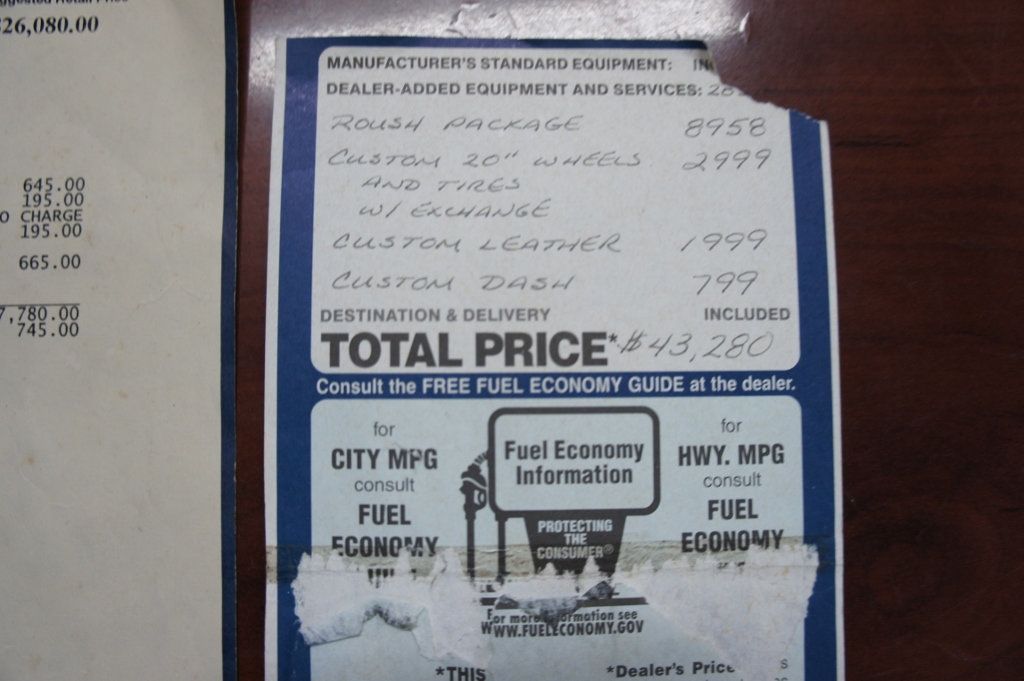 26,080.00
645.00
195.00
O CHARGE
195.00
665.00
7,780.00
745.00
MANUFACTURER'S STANDARD EQUIPMENT:
DEALER-ADDED EQUIPMENT AND SERVICES:
ROUSH PACKAGE 8958
CUSTOM 20" WHEELS 2999
AND TIRES
W/ EXCHANGE
CUSTOM LEATHER 1999
CUSTOM DASH 799
DESTINATION & DELIVERY INCLUDED
TOTAL PRICE* $43,280
Consult the FREE FUEL ECONOMY GUIDE at the dealer.
for
CITY MPG
consult
FUEL
ECONOMY
Fuel Economy
Information
PROTECTING
THE
CONSUMER®
for
HWY. MPG
consult
FUEL
ECONOMY
For more information see
WWW.FUELECONOMY.GOV
*THIS *Dealer's Price